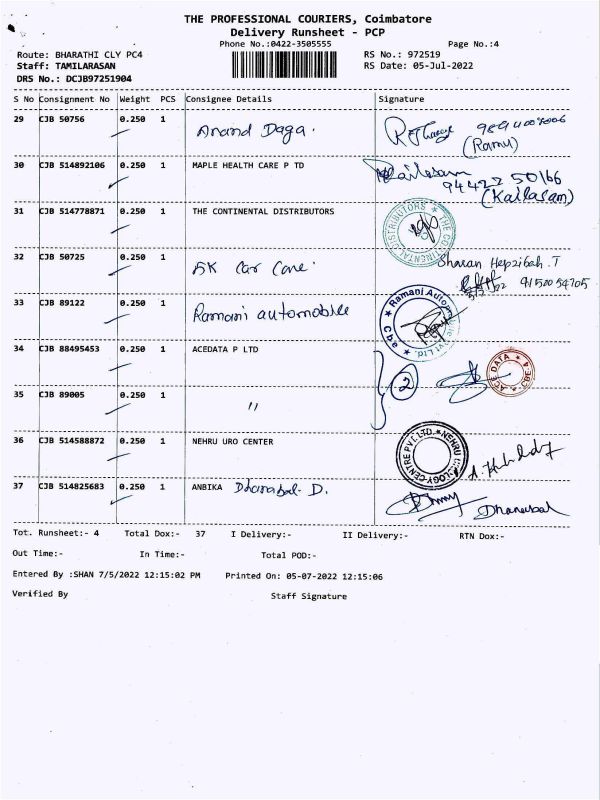 THE PROFESSIONAL COURIERS, Coimbatore
Delivery Runsheet - PCP
Phone No.:0422-3505555 Page No.:4
Route: BHARATHI CLY PC4 RS No.: 972519
Staff: TAMILARASAN RS Date: 05-Jul-2022
DRS No.: DCJB97251904
S No Consignment No Weight PCS Consignee Details Signature
29 CJB 50756 0.250 1 Anand Daga.
(Ramu)
30 CJB 514892106 0.250 1 MAPLE HEALTH CARE P TD Kailasam
94422 50166
(Kailasam)
31 CJB 514778871 0.250 1 THE CONTINENTAL DISTRIBUTORS
THE CONTINENTAL DISTRIBUTORS
32 CJB 50725 0.250 1 SK Car Care. Sharan Hepzibah.T
91500 54705
33 CJB 89122 0.250 1 Ramani automobile
Ramani Automobile Pvt Ltd. Cbe
34 CJB 88495453 0.250 1 ACEDATA P LTD
2
ACE DATA
35 CJB 89005 0.250 1 "
36 CJB 514588872 0.250 1 NEHRU URO CENTER
NEHRU UROLOGY CENTRE PVT.LTD.
37 CJB 514825683 0.250 1 ANBIKA Dhanabal. D.
Dhanabal
Tot. Runsheet:- 4 Total Dox:- 37 I Delivery:- II Delivery:- RTN Dox:-
Out Time:- In Time:- Total POD:-
Entered By :SHAN 7/5/2022 12:15:02 PM Printed On: 05-07-2022 12:15:06
Verified By Staff Signature